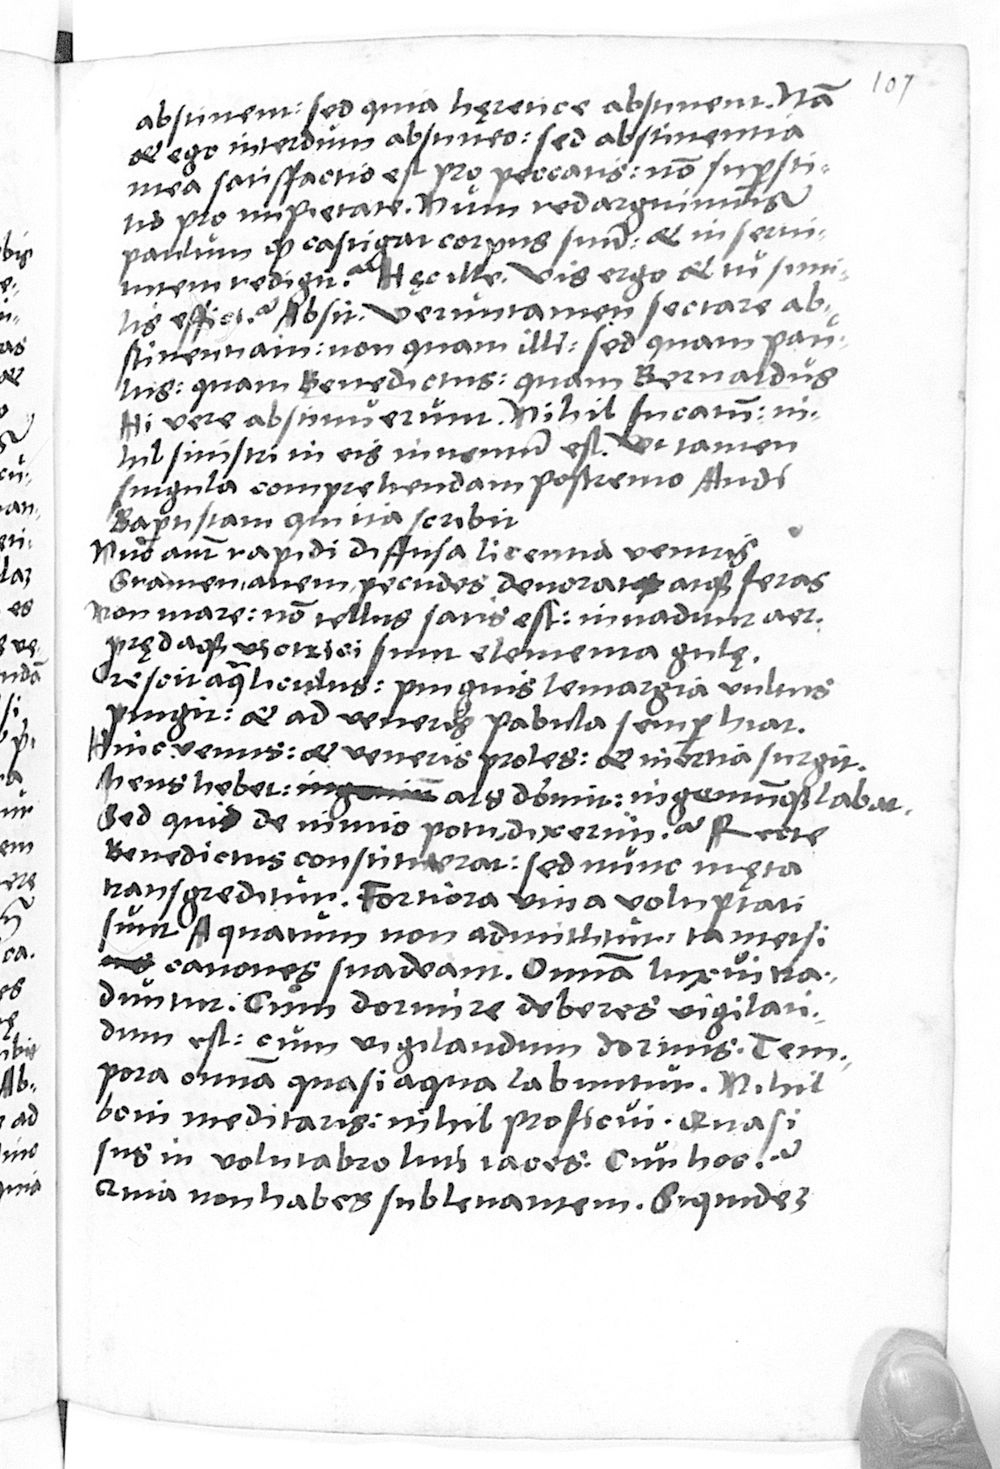 107
abstinent: sed quia hęretice abstinent. Nā
& ego interdum abstineo: sed abstinentia
mea satisfactio est pro peccatis: nō supersti-
tio pro impietate. Num redarguimus
paulum qp castigat corpus suū: & in servi-
tutem redigit? Hęc ille. Vis ergo & tu simi-
lis effici? Absit. Veruntamen sectare ab-
stinentiam: non quam illi: sed quam pau-
lus: quam Benedictus: quam Bernardus
Hi vere abstinuerunt. Nihil fucatū: ni-
hil sinistri in eis inventū est. Ut tamen
singula comprehendam postremo Audi
Baptistam qui ita scribit
Nūc aut rapidi diffusa licentia ventris
Gramen, avem, pecudes devorat atq feras
Non mare: nō tellus satis est: invaditur aer.
prędaq victrici sunt elementa gulę.
Crescit aqualiculus: pinguis lemargia vultus
pingit: & ad veneris pabula semp hiat.
Hinc venus: & veneris proles: & inertia surgit.
Mens hebet: ars dormit: ingeniūq labat.
Sed quid de nimio potu dixerim? Recte
Benedictus constituerat: sed nunc męta
transgreditur. Fortiora vina voluptati
sunt Aquatum non admittitur, tametsi
canones suadeant. Omnā luxui tra-
duntur. Cum dormire deberes vigilan-
dum est: cum vigilandum dormis. Tem-
pora omnā quasi aqua labuntur. Nihil
boni meditaris: nihil proficui. Quasi
sus in volutabro luti iaces. Cur hoc?
Quia non habes sublevantem. Siquidez